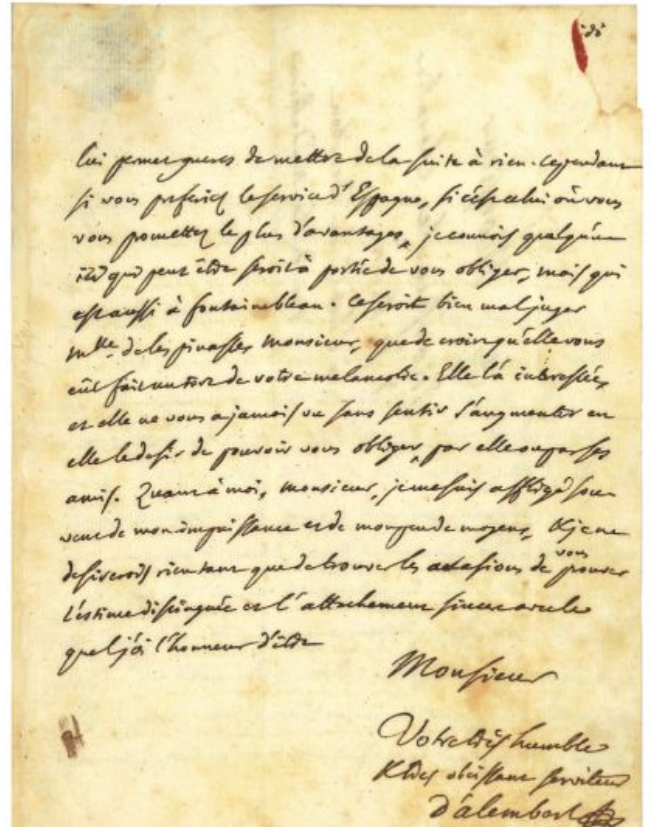 lui permet gueres de mettre de la suite à rien. cependant
si vous preferiez le service d'Espagne, si c'est celui où vous
vous promettez le plus d'avantages, je connois quelqu'un
ici qui peut être seroit à portée de vous obliger, mais qui
est aussi à fontainebleau. Ce seroit bien mal juger
Mlle. de lespinasse, monsieur, que de croire qu'elle vous
eût fait un tort de votre melancolie. Elle l'a interessée,
et elle ne vous a jamais vu sans sentir s'augmenter en
elle le desir de pouvoir vous obliger, par elle ou par ses
amis. Quant à moi, monsieur, je me suis affligé sou-
vent de mon impuissance et de mon peu de moyens, & je ne
desirerois rien tant que de trouver les occasions de vous prouver
l'estime distinguée et l'attachement sincere avec le
quel j'ai l'honneur d'être
Monsieur
Votre très humble
& très obeissant serviteur
d'alembert